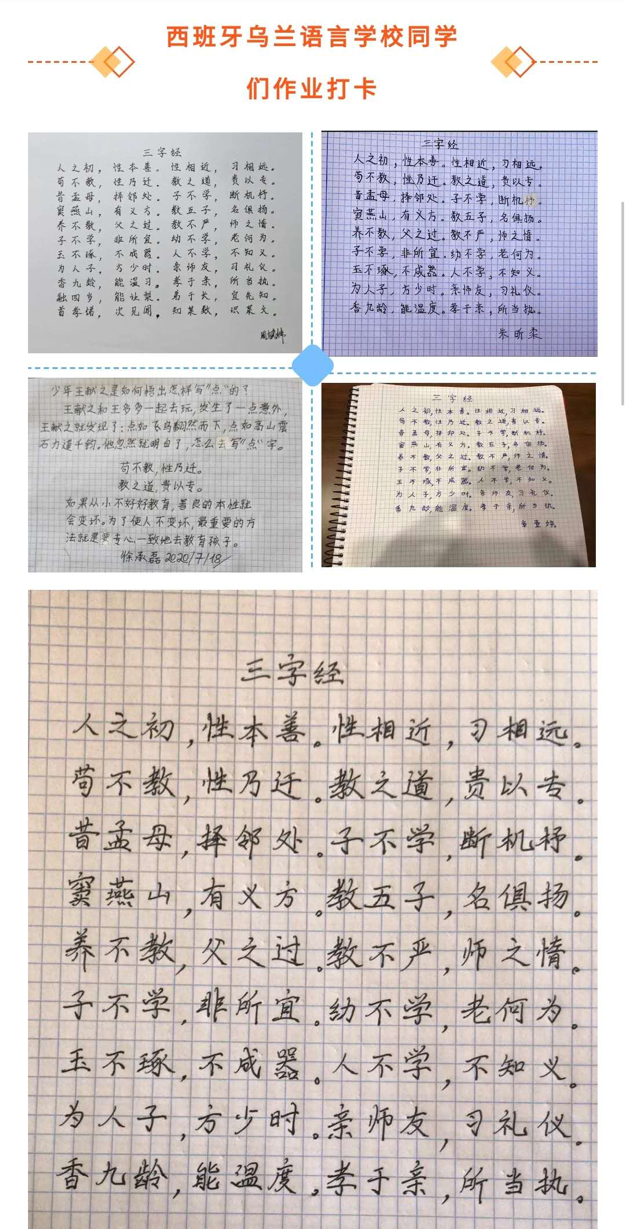 西班牙乌兰语言学校同学
们作业打卡
三字经
人之初，性本善。性相近，习相远。
苟不教，性乃迁。教之道，贵以专。
昔孟母，择邻处。子不学，断机杼。
窦燕山，有义方。教五子，名俱扬。
养不教，父之过。教不严，师之惰。
子不学，非所宜。幼不学，老何为。
玉不琢，不成器。人不学，不知义。
为人子，方少时。亲师友，习礼仪。
香九龄，能温习。孝于亲，所当执。
融四岁，能让梨。弟于长，宜先知。
首孝悌，次见闻，知某数，识某文。
三字经
人之初，性本善。性相近，习相远。
苟不教，性乃迁。教之道，贵以专。
昔孟母，择邻处。子不学，断机杼。
窦燕山，有义方。教五子，名俱扬。
养不教，父之过。教不严，师之惰。
子不学，非所宜。幼不学，老何为。
玉不琢，不成器。人不学，不知义。
为人子，方少时。亲师友，习礼仪。
香九龄，能温度。孝于亲，所当执。
朱昕柔
少年王献之是如何悟出怎样写“点”的？
王献之和王多多一起去玩，发生了一点意外，
王献之就发现了：点如飞鸟翻然而下，点如高山坠
石力道千钧。他忽然就明白了，怎么去写“点”字。
苟不教，性乃迁。
教之道，贵以专。
如果从小不好好教育，善良的本性就
会变坏。为了使人不变坏，最重要的方
法就是要专心一致地去教育孩子。
徐承磊 2020/7/18
三字经
人之初，性本善。性相近，习相远。
苟不教，性乃迁。教之道，贵以专。
昔孟母，择邻处。子不学，断机杼。
窦燕山，有义方。教五子，名俱扬。
养不教，父之过。教不严，师之惰。
子不学，非所宜。幼不学，老何为。
玉不琢，不成器。人不学，不知义。
为人子，方少时。亲师友，习礼仪。
香九龄，能温度。孝于亲，所当执。
三字经
人之初，性本善。性相近，习相远。
苟不教，性乃迁。教之道，贵以专。
昔孟母，择邻处。子不学，断机杼。
窦燕山，有义方。教五子，名俱扬。
养不教，父之过。教不严，师之惰。
子不学，非所宜。幼不学，老何为。
玉不琢，不成器。人不学，不知义。
为人子，方少时。亲师友，习礼仪。
香九龄，能温度。孝于亲，所当执。